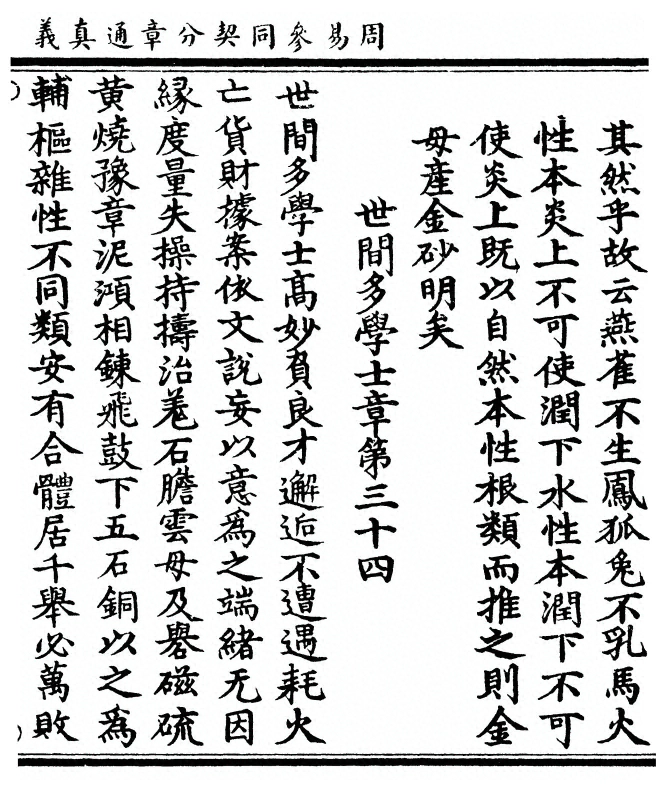 周易參同契分章通真義
其然乎故云燕雀不生鳳狐兔不乳馬火
性本炎上不可使潤下水性本潤下不可
使炎上既以自然本性根類而推之則金
母產金砂明矣
世間多學士章第三十四
世間多學士高妙負良才邂逅不遭遇耗火
亡貨財據案依文說妄以意爲之端緒无因
緣度量失操持擣治羗石膽雲母及礜磁硫
黃燒豫章泥澒相鍊飛鼓下五石銅以之爲
輔樞雜性不同類安有合體居千舉必萬敗